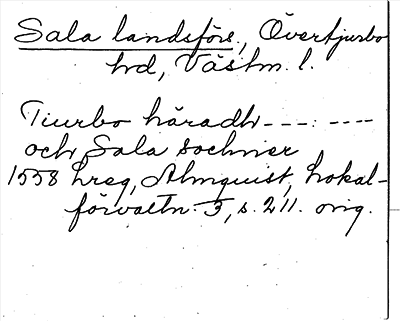 Sala landsförs., Övertjurbo
hd, Västm. l.
Tiurbo häradh ---: ----
och Sala sochner
1558 hreg, Almquist, Lokal-
förvaltn. 3, s. 211. orig.